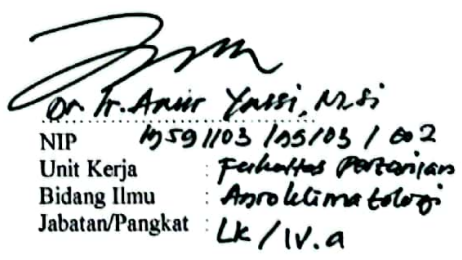 Dr. Ir. Amir Yassi, M.Si
NIP 19591103 199103 1 002
Unit Kerja : Fakultas Pertanian
Bidang Ilmu : Agroklimatologi
Jabatan/Pangkat : LK / IV.a